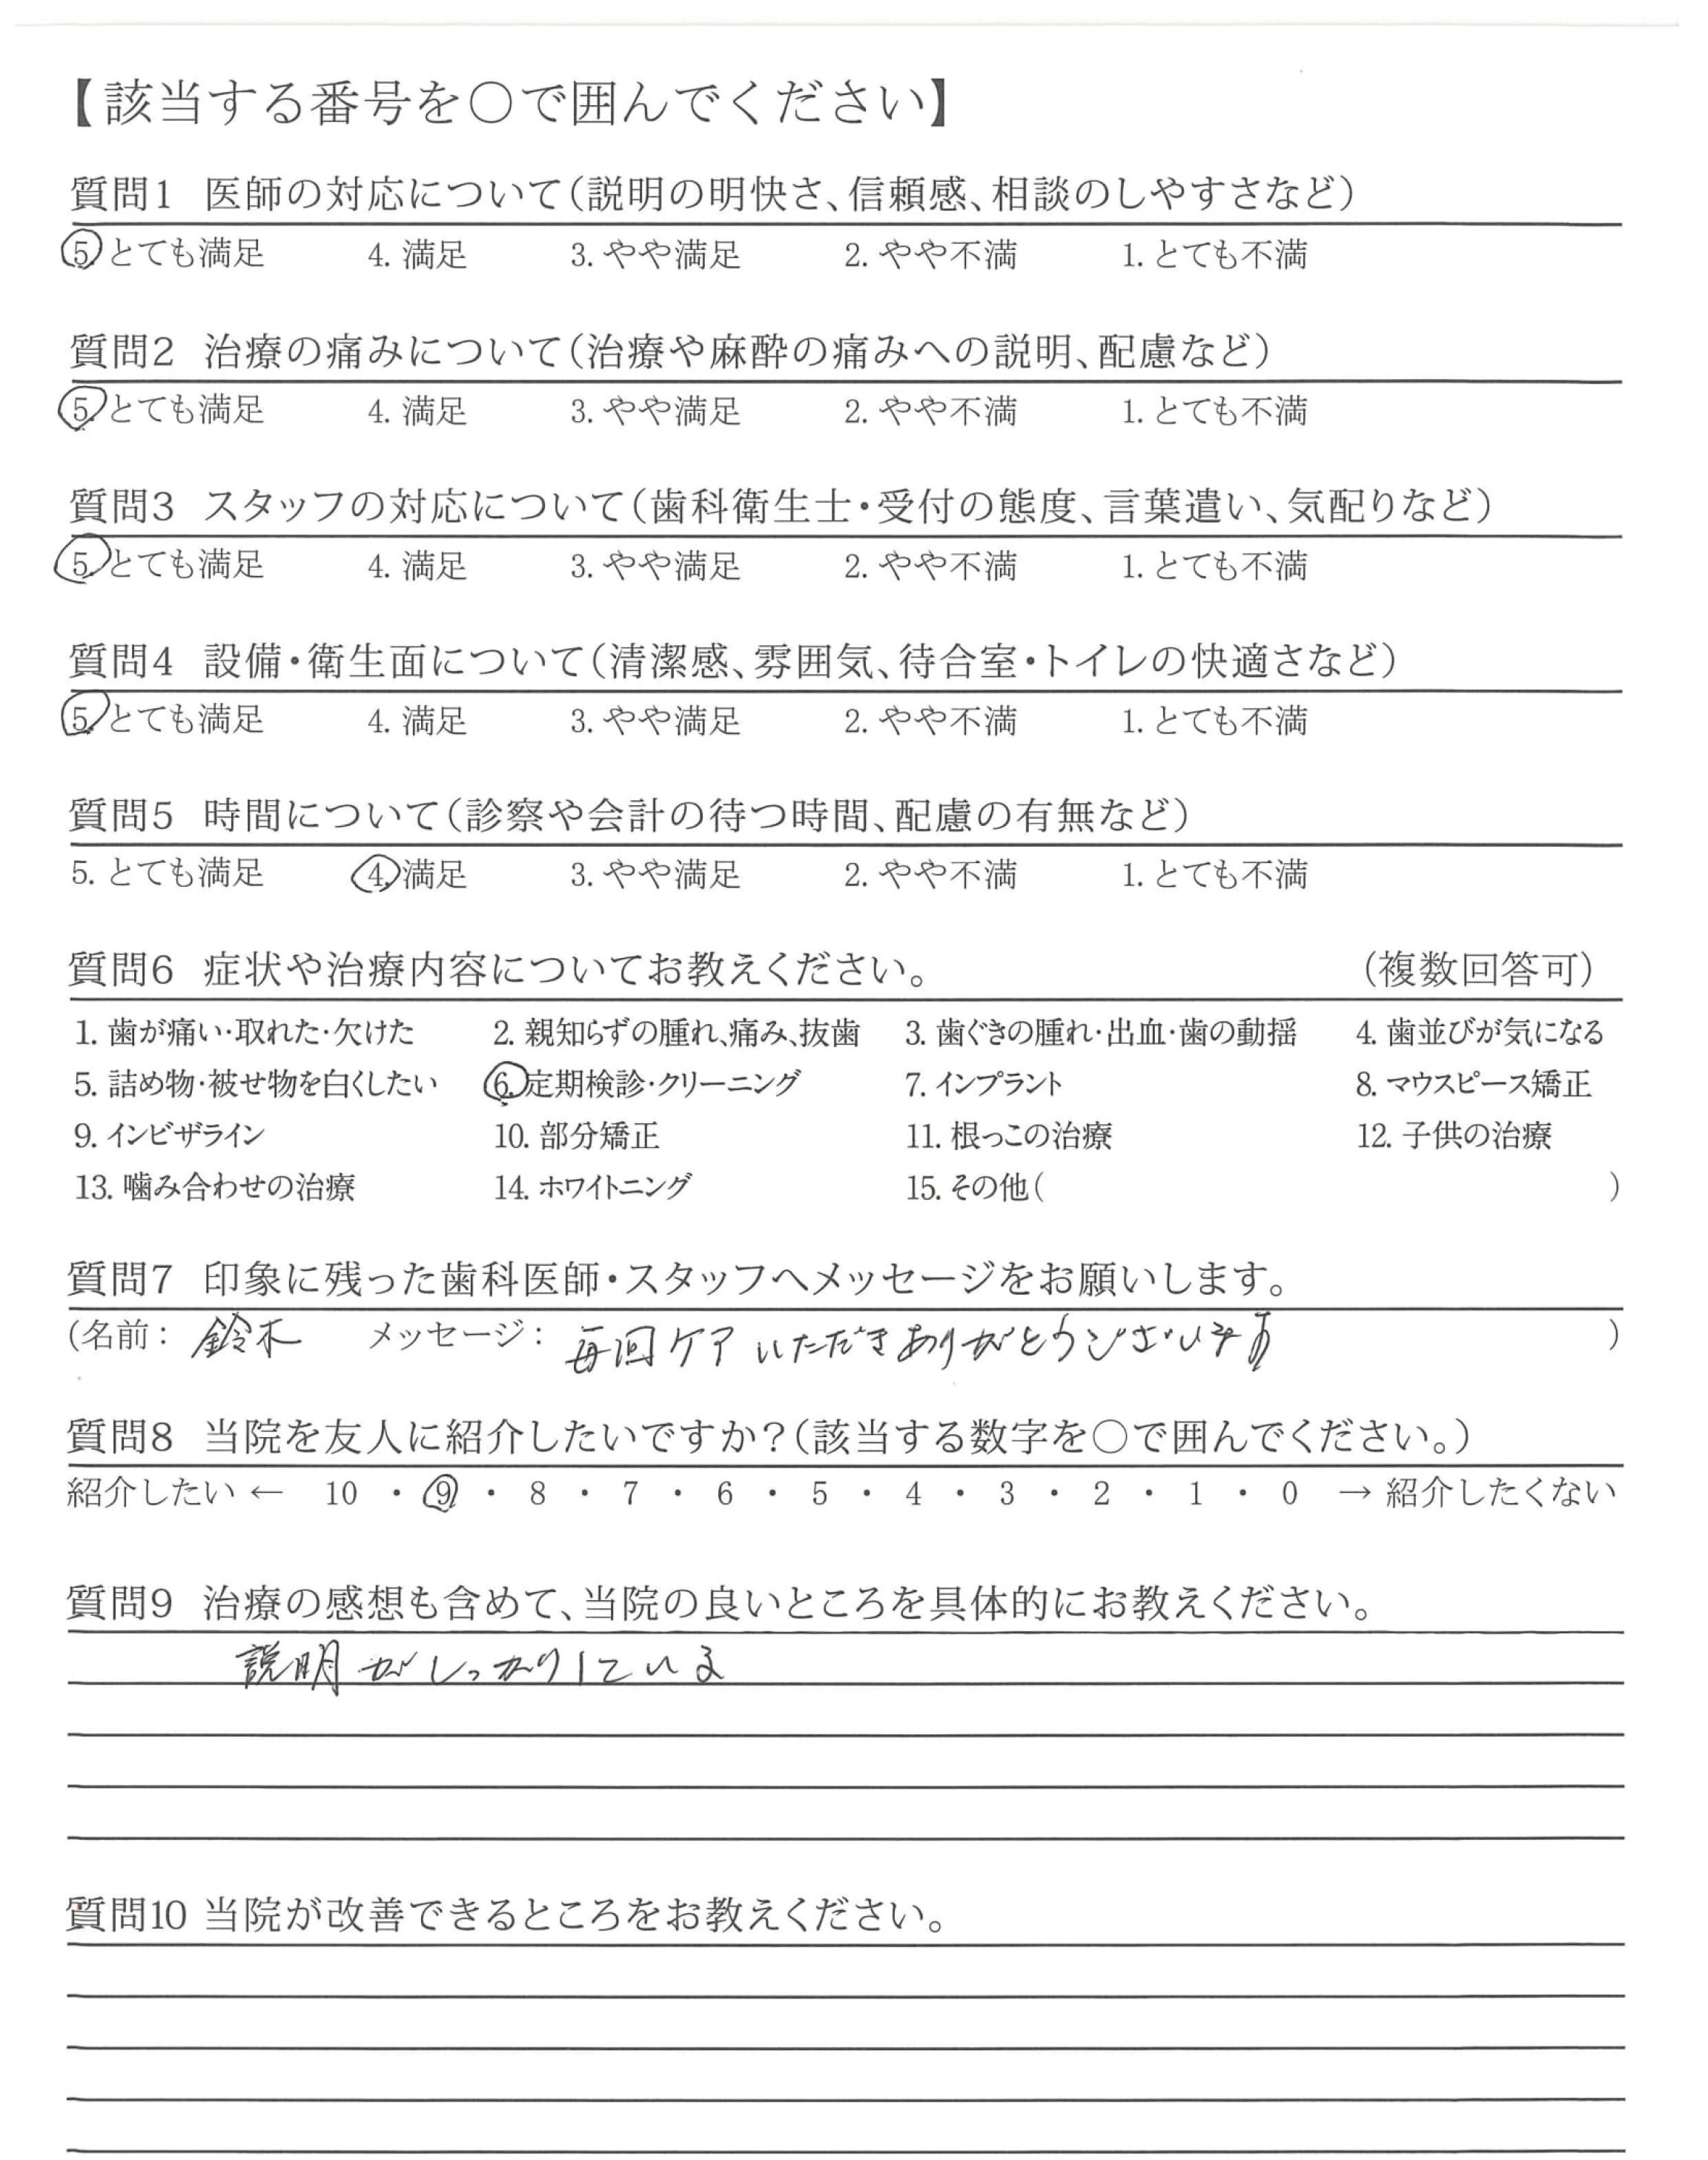 【該当する番号を○で囲んでください】
質問1 医師の対応について（説明の明快さ、信頼感、相談のしやすさなど）
5. とても満足 4. 満足 3. やや満足 2. やや不満 1. とても不満
質問2 治療の痛みについて（治療や麻酔の痛みへの説明、配慮など）
5. とても満足 4. 満足 3. やや満足 2. やや不満 1. とても不満
質問3 スタッフの対応について（歯科衛生士・受付の態度、言葉遣い、気配りなど）
5. とても満足 4. 満足 3. やや満足 2. やや不満 1. とても不満
質問4 設備・衛生面について（清潔感、雰囲気、待合室・トイレの快適さなど）
5. とても満足 4. 満足 3. やや満足 2. やや不満 1. とても不満
質問5 時間について（診察や会計の待つ時間、配慮の有無など）
5. とても満足 4. 満足 3. やや満足 2. やや不満 1. とても不満
質問6 症状や治療内容についてお教えください。 （複数回答可）
1. 歯が痛い・取れた・欠けた 2. 親知らずの腫れ、痛み、抜歯 3. 歯ぐきの腫れ・出血・歯の動揺 4. 歯並びが気になる
5. 詰め物・被せ物を白くしたい 6. 定期検診・クリーニング 7. インプラント 8. マウスピース矯正
9. インビザライン 10. 部分矯正 11. 根っこの治療 12. 子供の治療
13. 噛み合わせの治療 14. ホワイトニング 15. その他（ ）
質問7 印象に残った歯科医師・スタッフへメッセージをお願いします。
（名前： 鈴木 メッセージ： 毎回ケアいただきありがとうございます ）
質問8 当院を友人に紹介したいですか？（該当する数字を○で囲んでください。）
紹介したい ← 10 ・ 9 ・ 8 ・ 7 ・ 6 ・ 5 ・ 4 ・ 3 ・ 2 ・ 1 ・ 0 → 紹介したくない
質問9 治療の感想も含めて、当院の良いところを具体的にお教えください。
説明がしっかりしている
質問10 当院が改善できるところをお教えください。